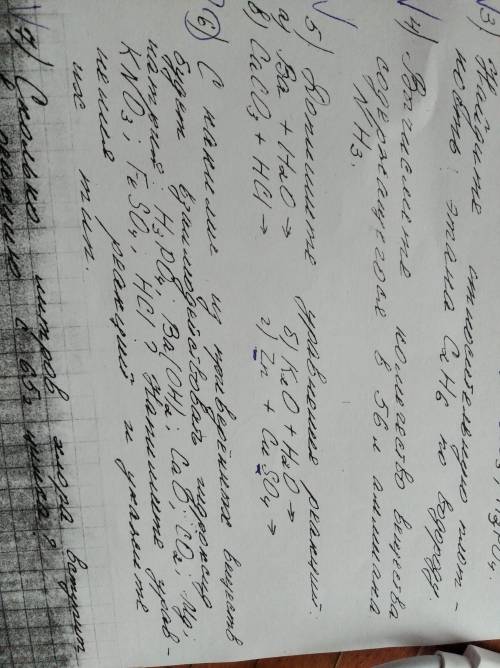 3) Найдите относительную плот-
ность этана C2H6 по водороду.
4) Вычислите количество вещества
содержащегося в 56 л аммиака
NH3.
5) Допишите уравнения реакций:
а) Ba + H2O → б) K2O + H2O →
в) CaCO3 + HCl → г) Zn + CuSO4 →
6) С какими из приведённых веществ
будет взаимодействовать гидроксид
натрия: H3PO4, Ba(OH)2; CaO; CO2; Mg;
KNO3; FeSO4; HCl? Напишите урав-
нения реакций и укажите
их тип.
7) Сколько литров хлора вступит
в реакцию с 65г цинка?